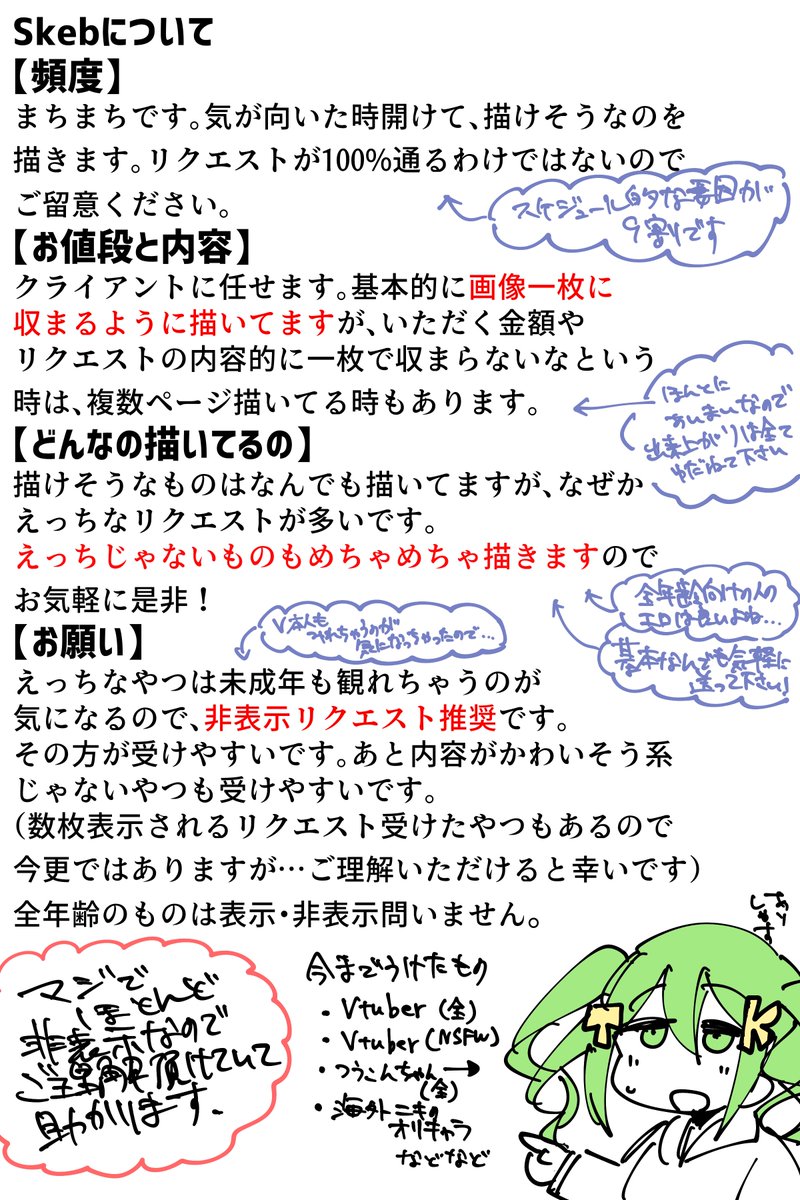 Skebについて
【頻度】
まちまちです。気が向いた時開けて、描けそうなのを
描きます。リクエストが100%通るわけではないので
ご留意ください。
スケジュール的な要因が
9割りです
【お値段と内容】
クライアントに任せます。基本的に画像一枚に
収まるように描いてますが、いただく金額や
リクエストの内容的に一枚で収まらないなという
時は、複数ページ描いてる時もあります。
ほんとに
あいまいなので
出来上がりは全て
ゆだねて下さい
【どんなの描いてるの】
描けそうなものはなんでも描いてますが、なぜか
えっちなリクエストが多いです。
えっちじゃないものもめちゃめちゃ描きますので
お気軽に是非！
全年齢向けの人の
エロは良いよね…
基本なんでも気軽に
送って下さい!
【お願い】
V本人も
つれちゃうのが
気になっちゃったので…
えっちなやつは未成年も観れちゃうのが
気になるので、非表示リクエスト推奨です。
その方が受けやすいです。あと内容がかわいそう系
じゃないやつも受けやすいです。
（数枚表示されるリクエスト受けたやつもあるので
今更ではありますが…ご理解いただけると幸いです）
全年齢のものは表示・非表示問いません。
マジで
ほとんど
非表示なので
ご理解頂けていて
助かります.
今までうけたもの
・Vtuber (全)
・Vtuber (NSFW)
・つうこんちゃん→
(全)
・海外ニキの
オリキャラ
などなど
あり
しゃす
T K